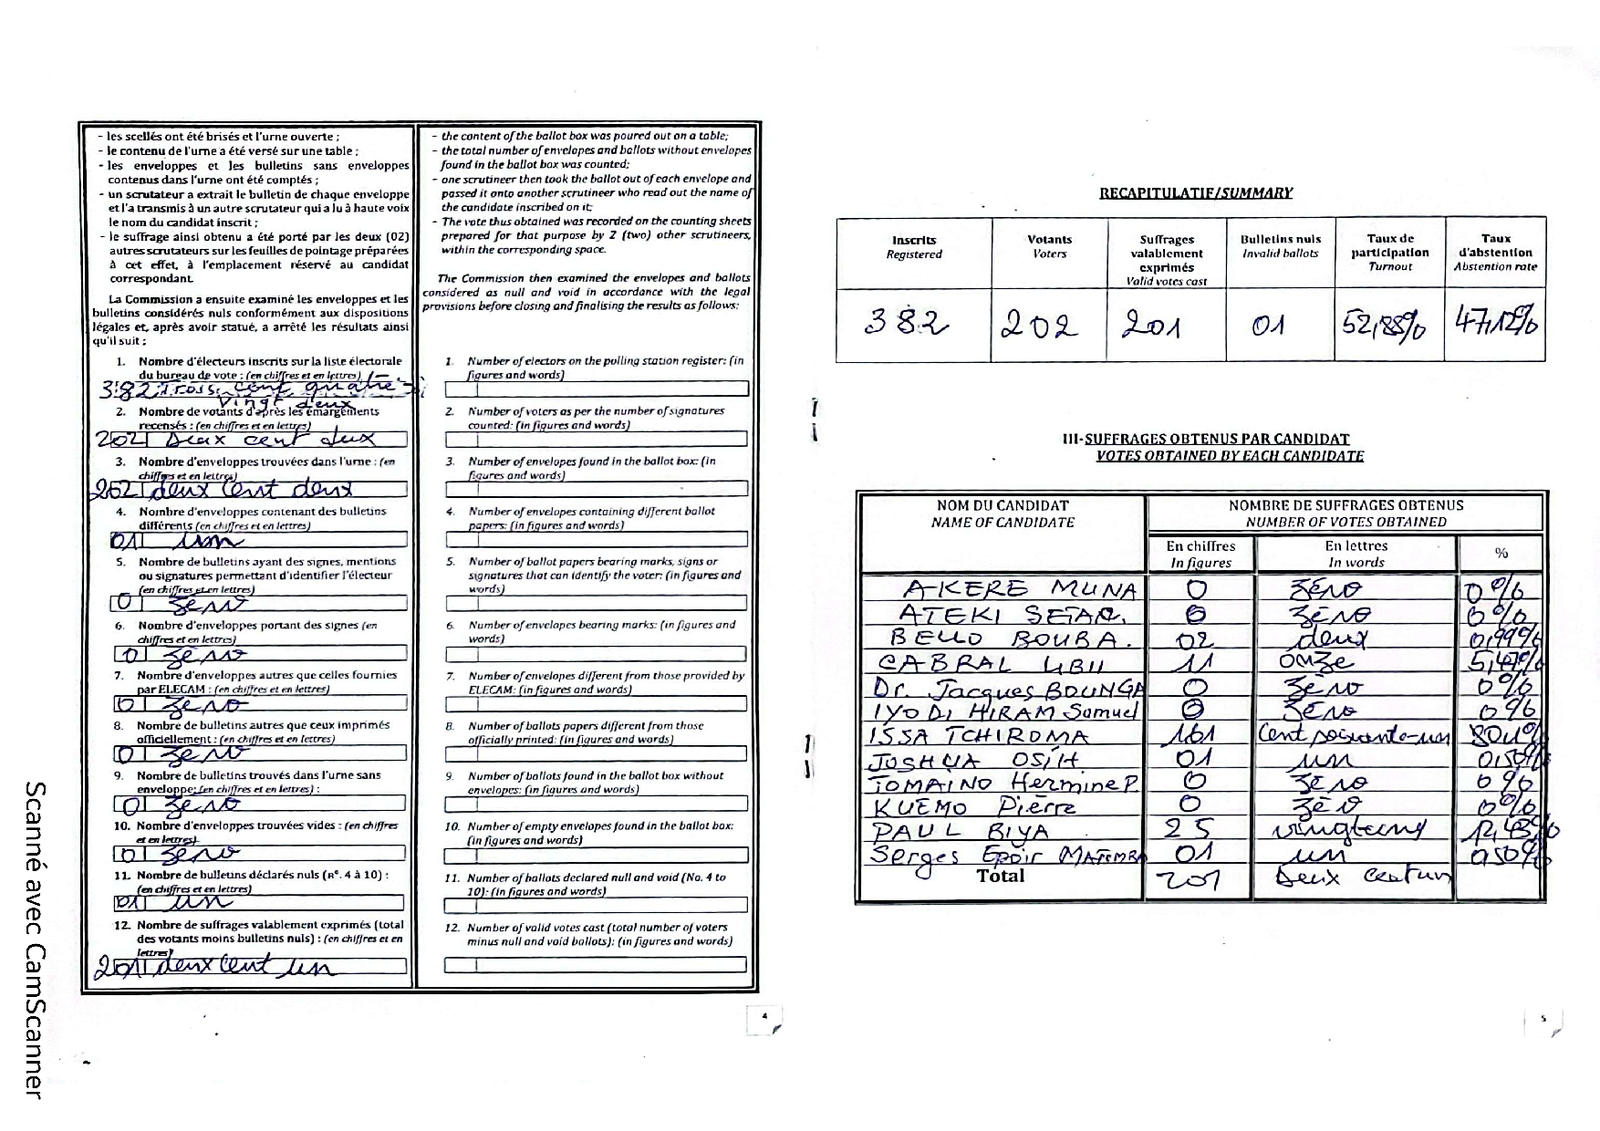 - les scellés ont été brisés et l'urne ouverte ;
- le contenu de l'urne a été versé sur une table ;
- les enveloppes et les bulletins sans enveloppes
contenus dans l'urne ont été comptés ;
- un scrutateur a extrait le bulletin de chaque enveloppe
et l'a transmis à un autre scrutateur qui a lu à haute voix
le nom du candidat inscrit ;
- le suffrage ainsi obtenu a été porté par les deux (02)
autres scrutateurs sur les feuilles de pointage préparées
à cet effet, à l'emplacement réservé au candidat
correspondant.
La Commission a ensuite examiné les enveloppes et les
bulletins considérés nuls conformément aux dispositions
légales et, après avoir statué, a arrêté les résultats ainsi
qu'il suit :
1. Nombre d'électeurs inscrits sur la liste électorale
du bureau de vote : (en chiffres et en lettres)
382 Trois cent quatre
vingt deux
2. Nombre de votants d'après les émargements
recensés : (en chiffres et en lettres)
202 Deux cent deux
3. Nombre d'enveloppes trouvées dans l'urne : (en
chiffres et en lettres)
202 deux cent deux
4. Nombre d'enveloppes contenant des bulletins
différents (en chiffres et en lettres)
01 un
5. Nombre de bulletins ayant des signes, mentions
ou signatures permettant d'identifier l'électeur
(en chiffres et en lettres)
0 zéro
6. Nombre d'enveloppes portant des signes (en
chiffres et en lettres)
0 zéro
7. Nombre d'enveloppes autres que celles fournies
par ELECAM : (en chiffres et en lettres)
0 zéro
8. Nombre de bulletins autres que ceux imprimés
officiellement : (en chiffres et en lettres)
0 zéro
9. Nombre de bulletins trouvés dans l'urne sans
enveloppe: (en chiffres et en lettres) :
0 zéro
10. Nombre d'enveloppes trouvées vides : (en chiffres
et en lettres)
0 zéro
11. Nombre de bulletins déclarés nuls (n°. 4 à 10) :
(en chiffres et en lettres)
01 un
12. Nombre de suffrages valablement exprimés (total
des votants moins bulletins nuls) : (en chiffres et en
lettres)
201 deux cent un
- the content of the ballot box was poured out on a table;
- the total number of envelopes and ballots without envelopes
found in the ballot box was counted;
- one scrutineer then took the ballot out of each envelope and
passed it onto another scrutineer who read out the name of
the candidate inscribed on it;
- The vote thus obtained was recorded on the counting sheets
prepared for that purpose by 2 (two) other scrutineers,
within the corresponding space.
The Commission then examined the envelopes and ballots
considered as null and void in accordance with the legal
provisions before closing and finalising the results as follows:
1. Number of electors on the polling station register: (in
figures and words)
2. Number of voters as per the number of signatures
counted: (in figures and words)
3. Number of envelopes found in the ballot box: (in
figures and words)
4. Number of envelopes containing different ballot
papers: (in figures and words)
5. Number of ballot papers bearing marks, signs or
signatures that can identify the voter: (in figures and
words)
6. Number of envelopes bearing marks: (in figures and
words)
7. Number of envelopes different from those provided by
ELECAM: (in figures and words)
8. Number of ballots papers different from those
officially printed: (in figures and words)
9. Number of ballots found in the ballot box without
envelopes: (in figures and words)
10. Number of empty envelopes found in the ballot box:
(in figures and words)
11. Number of ballots declared null and void (No. 4 to
10): (in figures and words)
12. Number of valid votes cast (total number of voters
minus null and void ballots): (in figures and words)
4
RECAPITULATIF/SUMMARY
Inscrits Registered | Votants Voters | Suffrages valablement exprimés Valid votes cast | Bulletins nuls Invalid ballots | Taux de participation Turnout | Taux d'abstention Abstention rate
382 | 202 | 201 | 01 | 52,88% | 47,12%
III-SUFFRAGES OBTENUS PAR CANDIDAT
VOTES OBTAINED BY EACH CANDIDATE
NOM DU CANDIDAT NOMBRE DE SUFFRAGES OBTENUS
NAME OF CANDIDATE NUMBER OF VOTES OBTAINED
En chiffres En lettres %
In figures In words
AKERE MUNA 0 zéro 0%
ATEKI 0 zéro 0%
BELLO BOUBA. 02 deux 0,99%
CABRAL LIBII 11 onze 5,47%
Dr. Jacques BOUNGA 0 zéro 0%
IYODI HIRAM Samuel 0 zéro 0%
ISSA TCHIROMA 161 Cent soixante-un
JOSHUA OSIH 01 un 0,50%
TOMAINO Hermine P. 0 zéro 0%
KUEMO Pierre 0 zéro 0%
PAUL BIYA 25 12,43%
Serges Espoir MATOMBA 01 un 0,50%
Total 201 Deux cent un
5
Scanné avec CamScanner